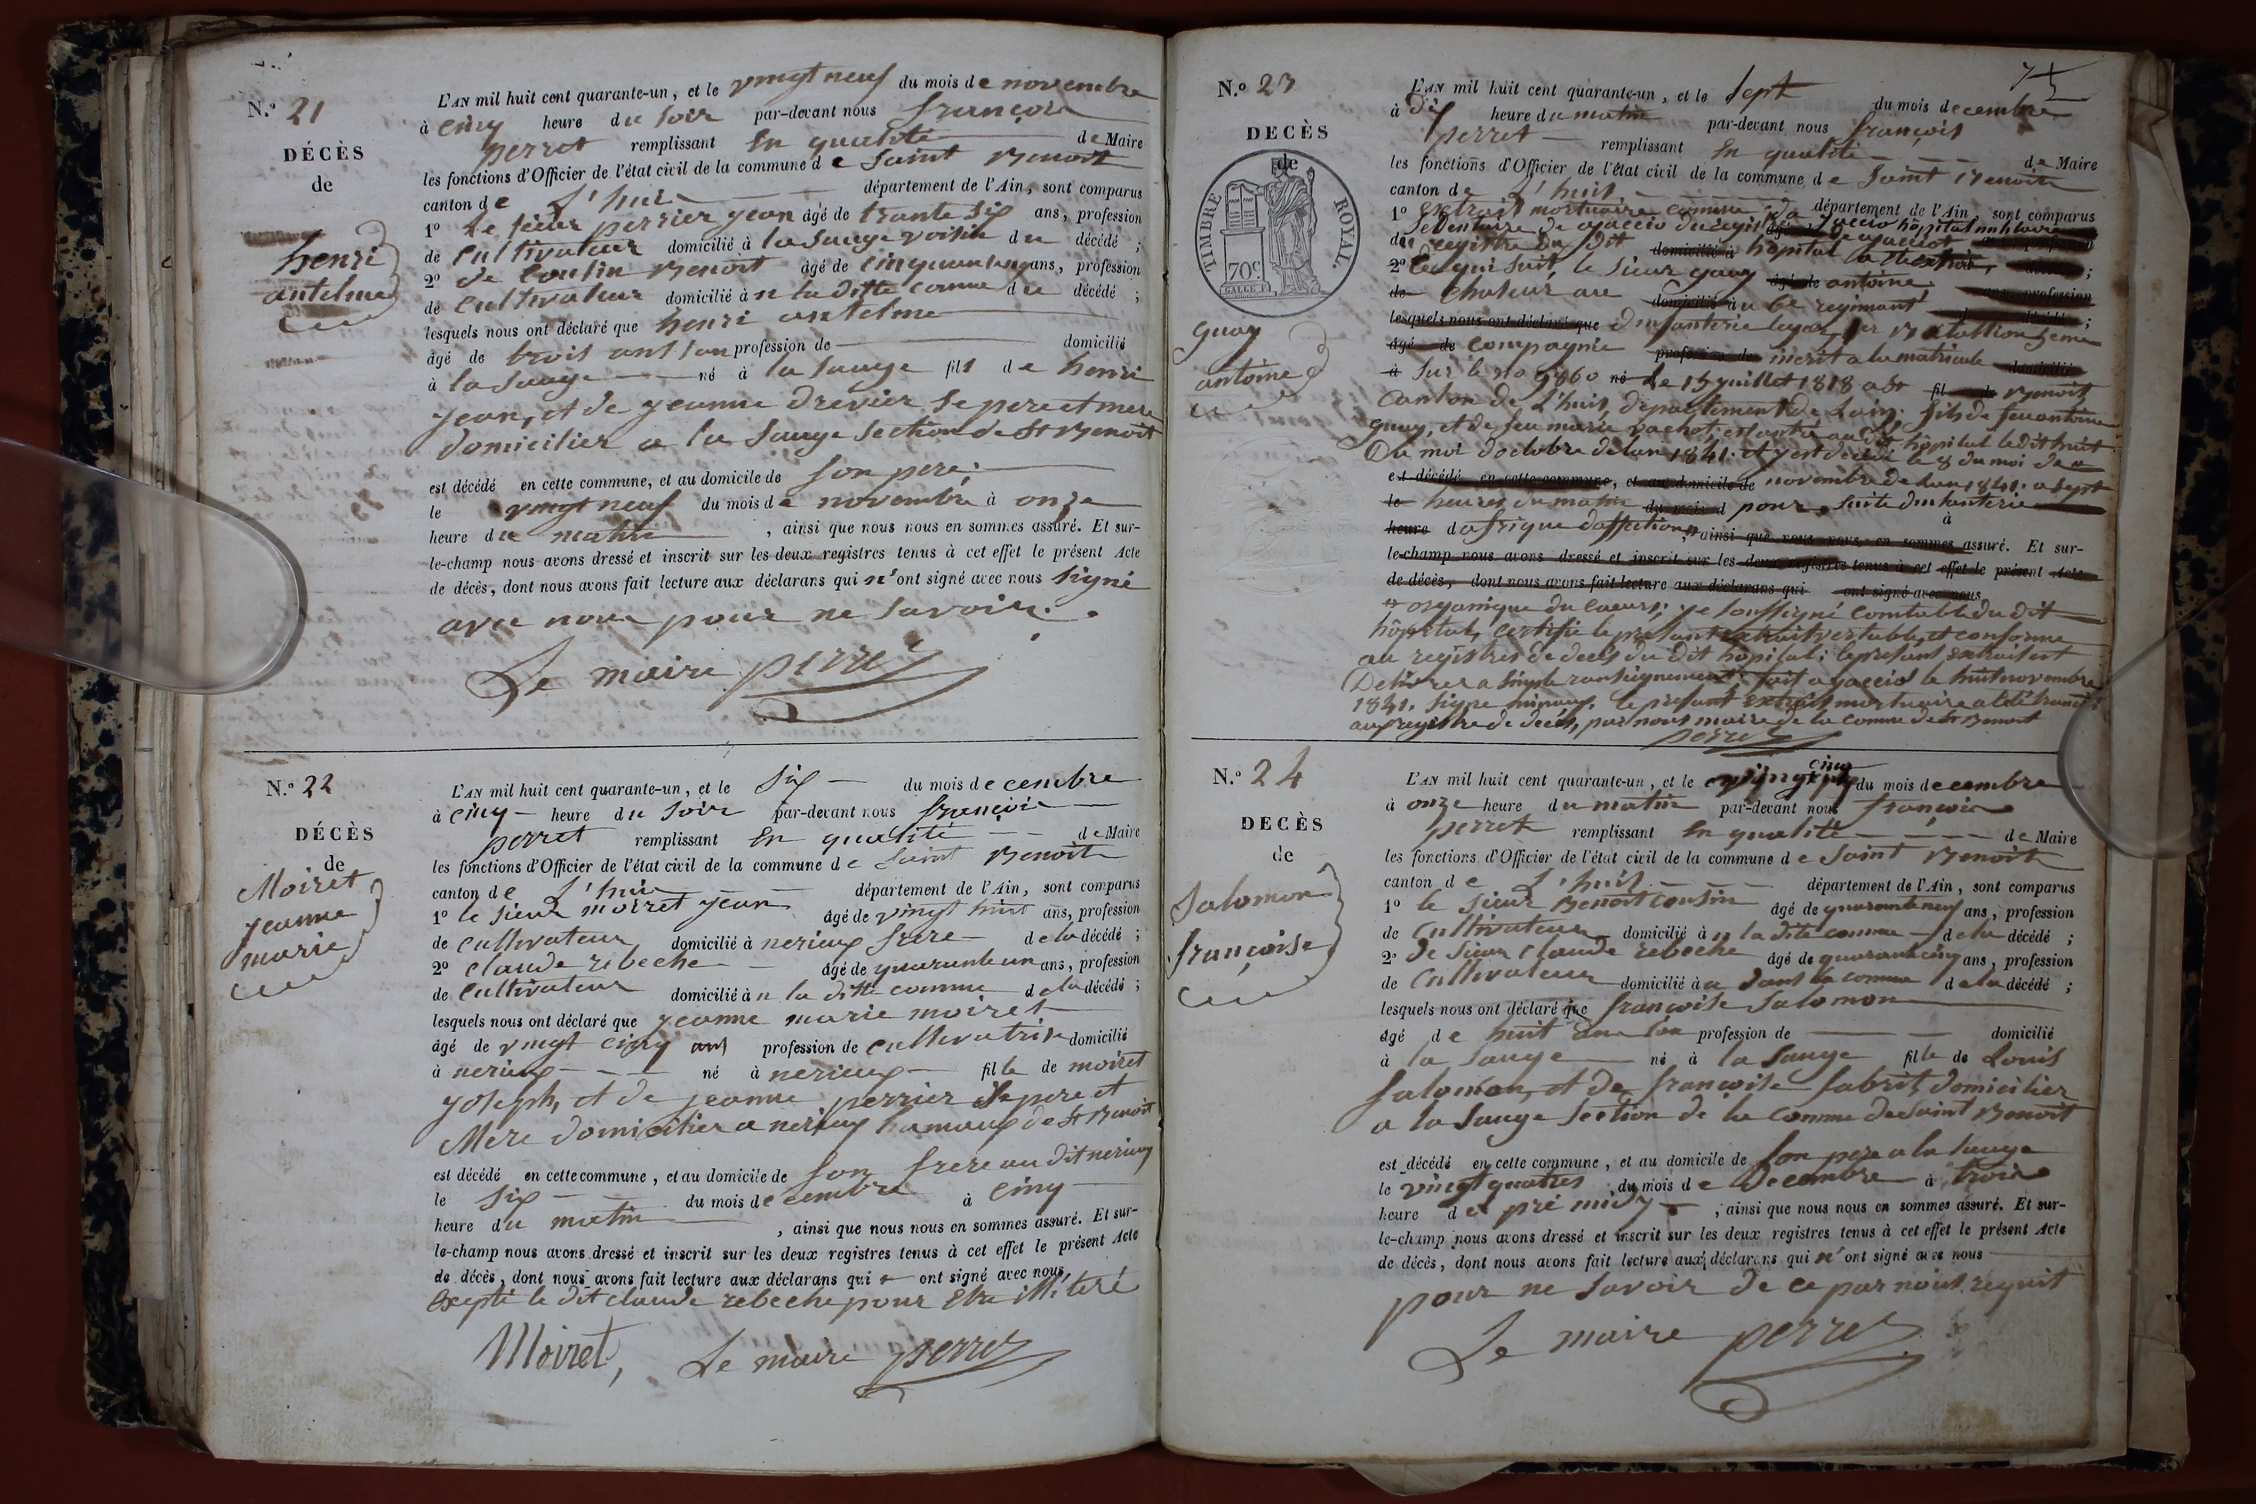 N.° 21
DÉCÈS
de
henri
antelme
L'AN mil huit cent quarante-un, et le vingt neuf du mois de novembre
à cinq heure du soir par-devant nous françois
perret remplissant En qualité de Maire
les fonctions d'Officier de l'état civil de la commune de Saint Benoit
canton de L'huis département de l'Ain, sont comparus
1° Le sieur perrier jean âgé de trante six ans, profession
de Cultivateur domicilié à la Sauge voisin du décédé ;
2° de Cousin Benoit âgé de cinquante ans, profession
de Cultivateur domicilié à n la ditte comune du décédé ;
lesquels nous ont déclaré que henri antelme
âgé de trois ans profession de domicilié
à la Sauge né à la Sauge fils de henri
jean, et de jeanne Drevier Se pere et mere
domicilier a la Sauge Section de St Benoit
est décédé en cette commune, et au domicile de Son pere,
le vingt neuf du mois de novembre à onze
heure du matin , ainsi que nous nous en sommes assuré. Et sur-
le-champ nous avons dressé et inscrit sur les deux registres tenus à cet effet le présent Acte
de décès, dont nous avons fait lecture aux déclarans qui n'ont signé avec nous Signé
avec nous pour ne Savoir.
Le maire perret
N.° 22
DÉCÈS
de
Moiret
jeanne
marie
L'AN mil huit cent quarante-un, et le Six du mois de cembre
à cinq heure du Soir par-devant nous françois
perret remplissant En qualité de Maire
les fonctions d'Officier de l'état civil de la commune de Saint Benoit
canton de L'huis département de l'Ain, sont comparus
1° le Sieur moiret jean âgé de vingt huit ans, profession
de Cultivateur domicilié à nerieux frere de la décédé ;
2° Claude rebeche âgé de quarante un ans, profession
de Cultivateur domicilié à n la ditte comune de la décédé ;
lesquels nous ont déclaré que jeanne marie moiret
âgé de vingt cinq ans profession de cultivatrise domicilié
à nerieux né à nerieux fille de moiret
joseph, et de jeanne perrier Se pere et
Mere domicilier a nerieux hamaux de St Benoit
est décédé en cette commune, et au domicile de Son frere au dit nerieux
le Six du mois de cembre à Cinq
heure du matin , ainsi que nous nous en sommes assuré. Et sur-
le-champ nous avons dressé et inscrit sur les deux registres tenus à cet effet le présent Acte
de décès, dont nous avons fait lecture aux déclarans qui ont signé avec nous,
Excepté le dit claude rebeche pour Etre illiteré
Moiret, Le maire perret
N.° 23
DECÈS
de
TIMBRE ROYAL.
70c
guay
antoine
L'AN mil huit cent quarante-un, et le Sept du mois de cembre
à Dix heure du matin par-devant nous françois
perret remplissant En qualité de Maire
les fonctions d'Officier de l'état civil de la commune de Saint Benoit
canton de L'huis département de l'Ain, sont comparus
1° Extrait mortuaire hôpital militaire
du registre du dit domicilié à hôpital
2° Ce qui Suit, le Sieur guay âgé de antoine ans, profession
de Chaseur au domicilié à u 6e regimant décédé ;
lesquels nous ont déclaré que d'infanterie 1er Batallion 3eme
âgé de compagnie profession de incrit a la matricule domicilié
à Sur le no 5860 né le 15 juillet 1818 a St fil de Benoit
Canton de L'huis, département de Lain. fils de feu antoine
guay, et de feu marie est antré au dit hôpital le dit huit
Du moi doctobre de lan 1841. et y est décédé le 8 du moi de
est décédé en cette commune, et au domicile de novembre de lan 1841. a Sept
le heures du matin du mois d pour Suite
heure dafrique daffection ainsi que nous nous en sommes assuré. Et sur-
le-champ nous avons dressé et inscrit sur les deux registres tenus à cet effet le présent Acte
de décès, dont nous avons fait lecture aux déclarans qui ont signé avec nous
organique du coeur; je Soussigné Comtable du dit
hôpital, certifie le présant extrait veritable et conforme
au registres de decés du dit hôpital; le présant extrait est
Delivrer a Simple ranseignement fait a yaccio le huit novembre
1841. Signé le présant Extrait mortuaire a été transcrit
aux registre de decés, par nous maire de la comune de St Benoit
perret
N.° 24
DECÈS
de
Salomon
françoise
L'AN mil huit cent quarante-un, et le vingt cinq du mois de cembre
à onze heure du matin par-devant nous françois
perret remplissant En qualité de Maire
les fonctions d'Officier de l'état civil de la commune de Saint Benoit
canton de L'huis département de l'Ain, sont comparus
1° le Sieur Benoit cousin âgé de quarante neuf ans, profession
de Cultivateur domicilié à n la dite comune de la décédé ;
2° de Sieur Claude rebeche âgé de quarante cinq ans, profession
de Cultivateur domicilié à dant la comune de la décédé ;
lesquels nous ont déclaré que françoise Salomon
âgé de huit ans profession de domicilié
à la Sauge né à la Sauge fille de Louis
Salomon, et de françoise fabrit, domicilier
a la Sauge Section de la comune de Saint Benoit
est décédé en cette commune, et au domicile de Son pere a la Sauge
le vingt quatres du mois de Decembre à trois
heure de pré midy , ainsi que nous nous en sommes assuré. Et sur-
le-champ nous avons dressé et inscrit sur les deux registres tenus à cet effet le présent Acte
de décès, dont nous avons fait lecture aux déclarans qui n'ont signé avec nous
pour ne Savoir de ce par nous requit
Le maire perret